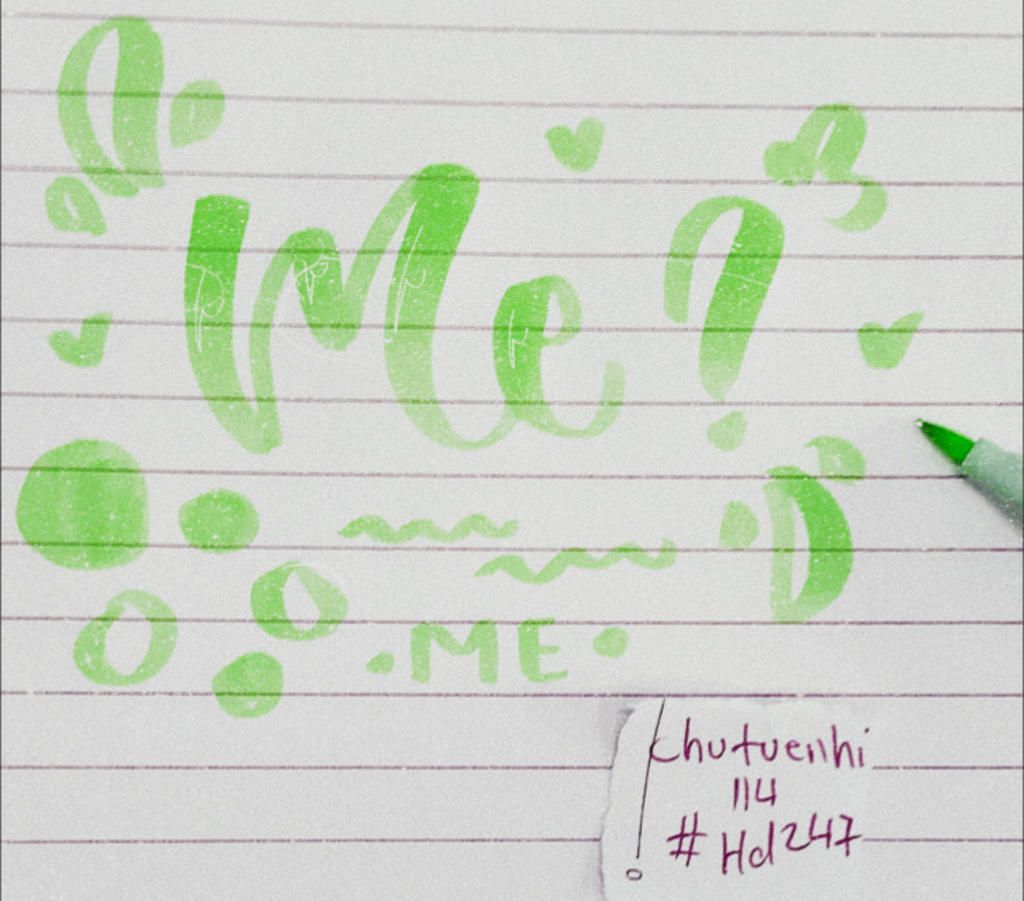 Me?
ME
chutuenhi
114
#Hd247